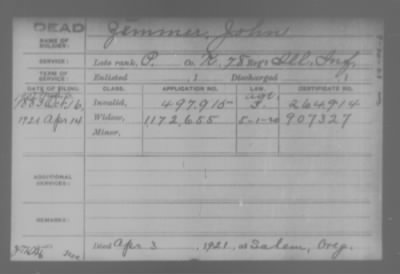 DEAD
NAME OF SOLDIER: Zimmer, John
SERVICE: Late rank, P. Co. K, 78 Reg't Ill. Inf.
TERM OF SERVICE: Enlisted , 1 Discharged , 1
DATE OF FILING. CLASS. APPLICATION NO. LAW. CERTIFICATE NO.
1883 Oct 16 Invalid, 497.915 264.914
1921 Apr 14 Widow, 1172.655 5-1-20 907327
Minor,
ADDITIONAL SERVICES:
REMARKS:
Died Apr 3, 1921, at Salem, Oreg.